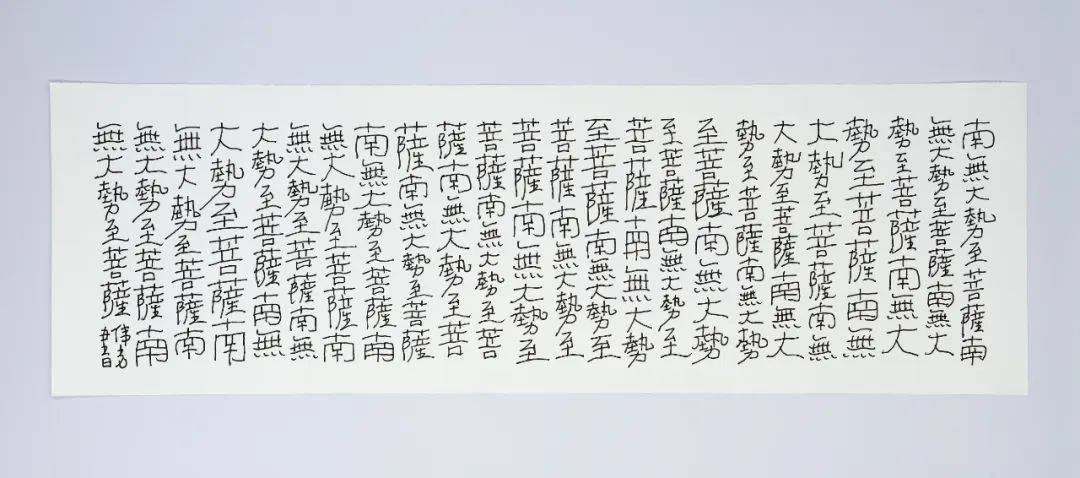 南無大勢至菩薩南
無大勢至菩薩南無大
勢至菩薩南無大
勢至菩薩南無
大勢至菩薩南無
大勢至菩薩南無大
勢至菩薩南無大勢
至菩薩南無大勢
至菩薩南無大勢至
菩薩南無大勢
至菩薩南無大勢至
菩薩南無大勢至
菩薩南無大勢至
菩薩南無大勢至菩
薩南無大勢至菩
薩南無大勢至菩薩
南無大勢至菩薩南
無大勢至菩薩南
無大勢至菩薩南無
大勢至菩薩南無
大勢至菩薩南
無大勢至菩薩南
無大勢至菩薩南
無大勢至菩薩